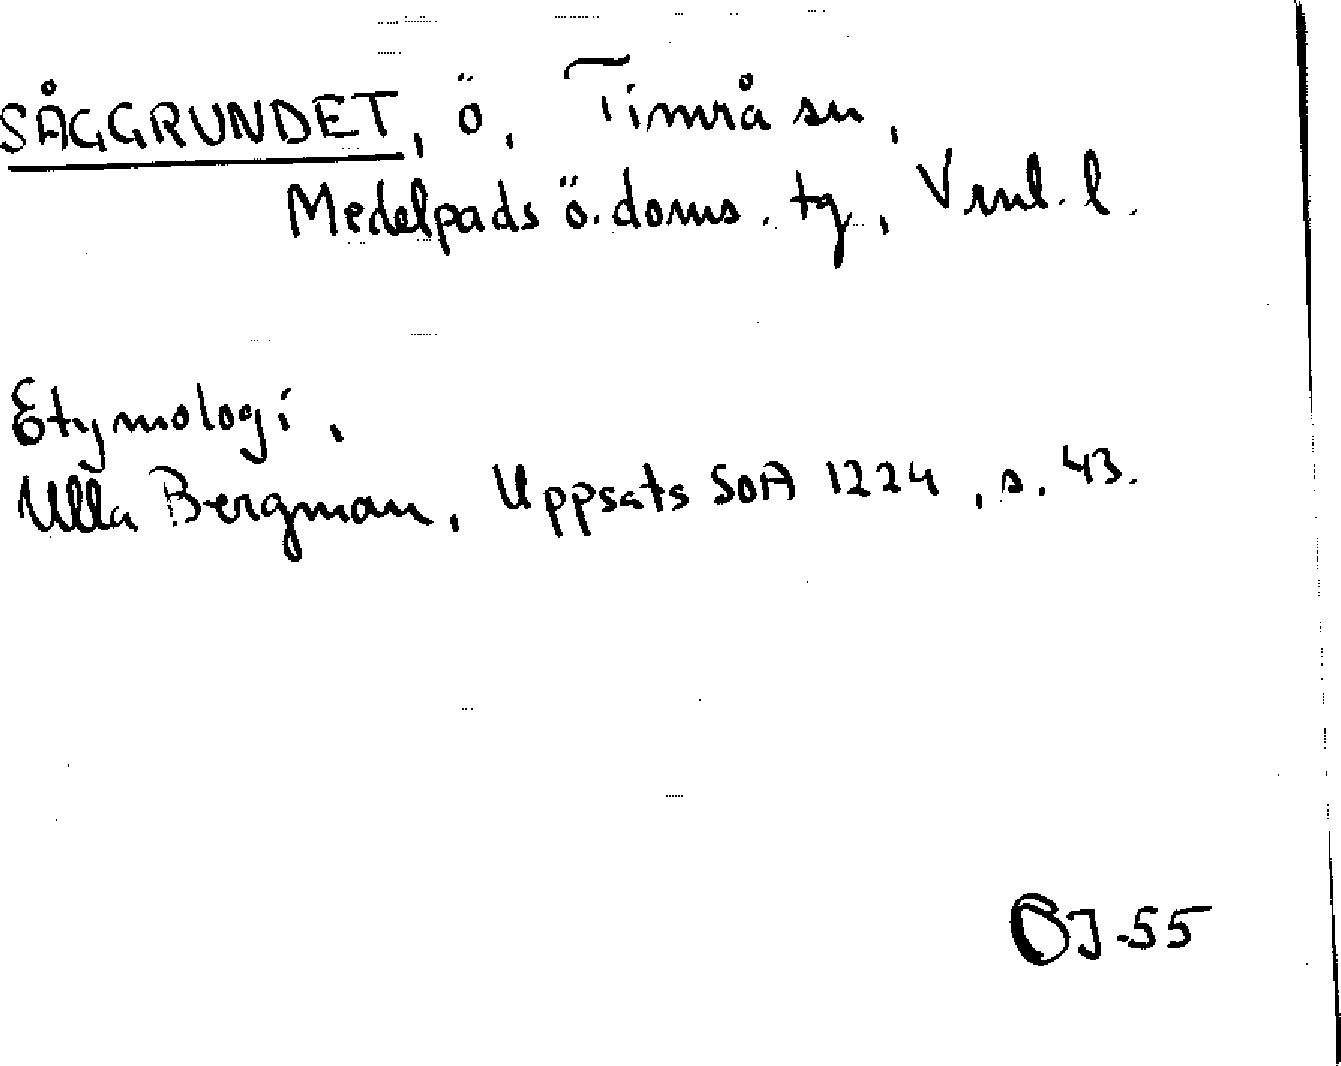 SÅGGRUNDET, ö, Timrå sn,
Medelpads ö. doms. tg, Vrnl. l.
Etymologi,
Ulla Bergman, Uppsats SOA 1224, s. 43.
BJ-55